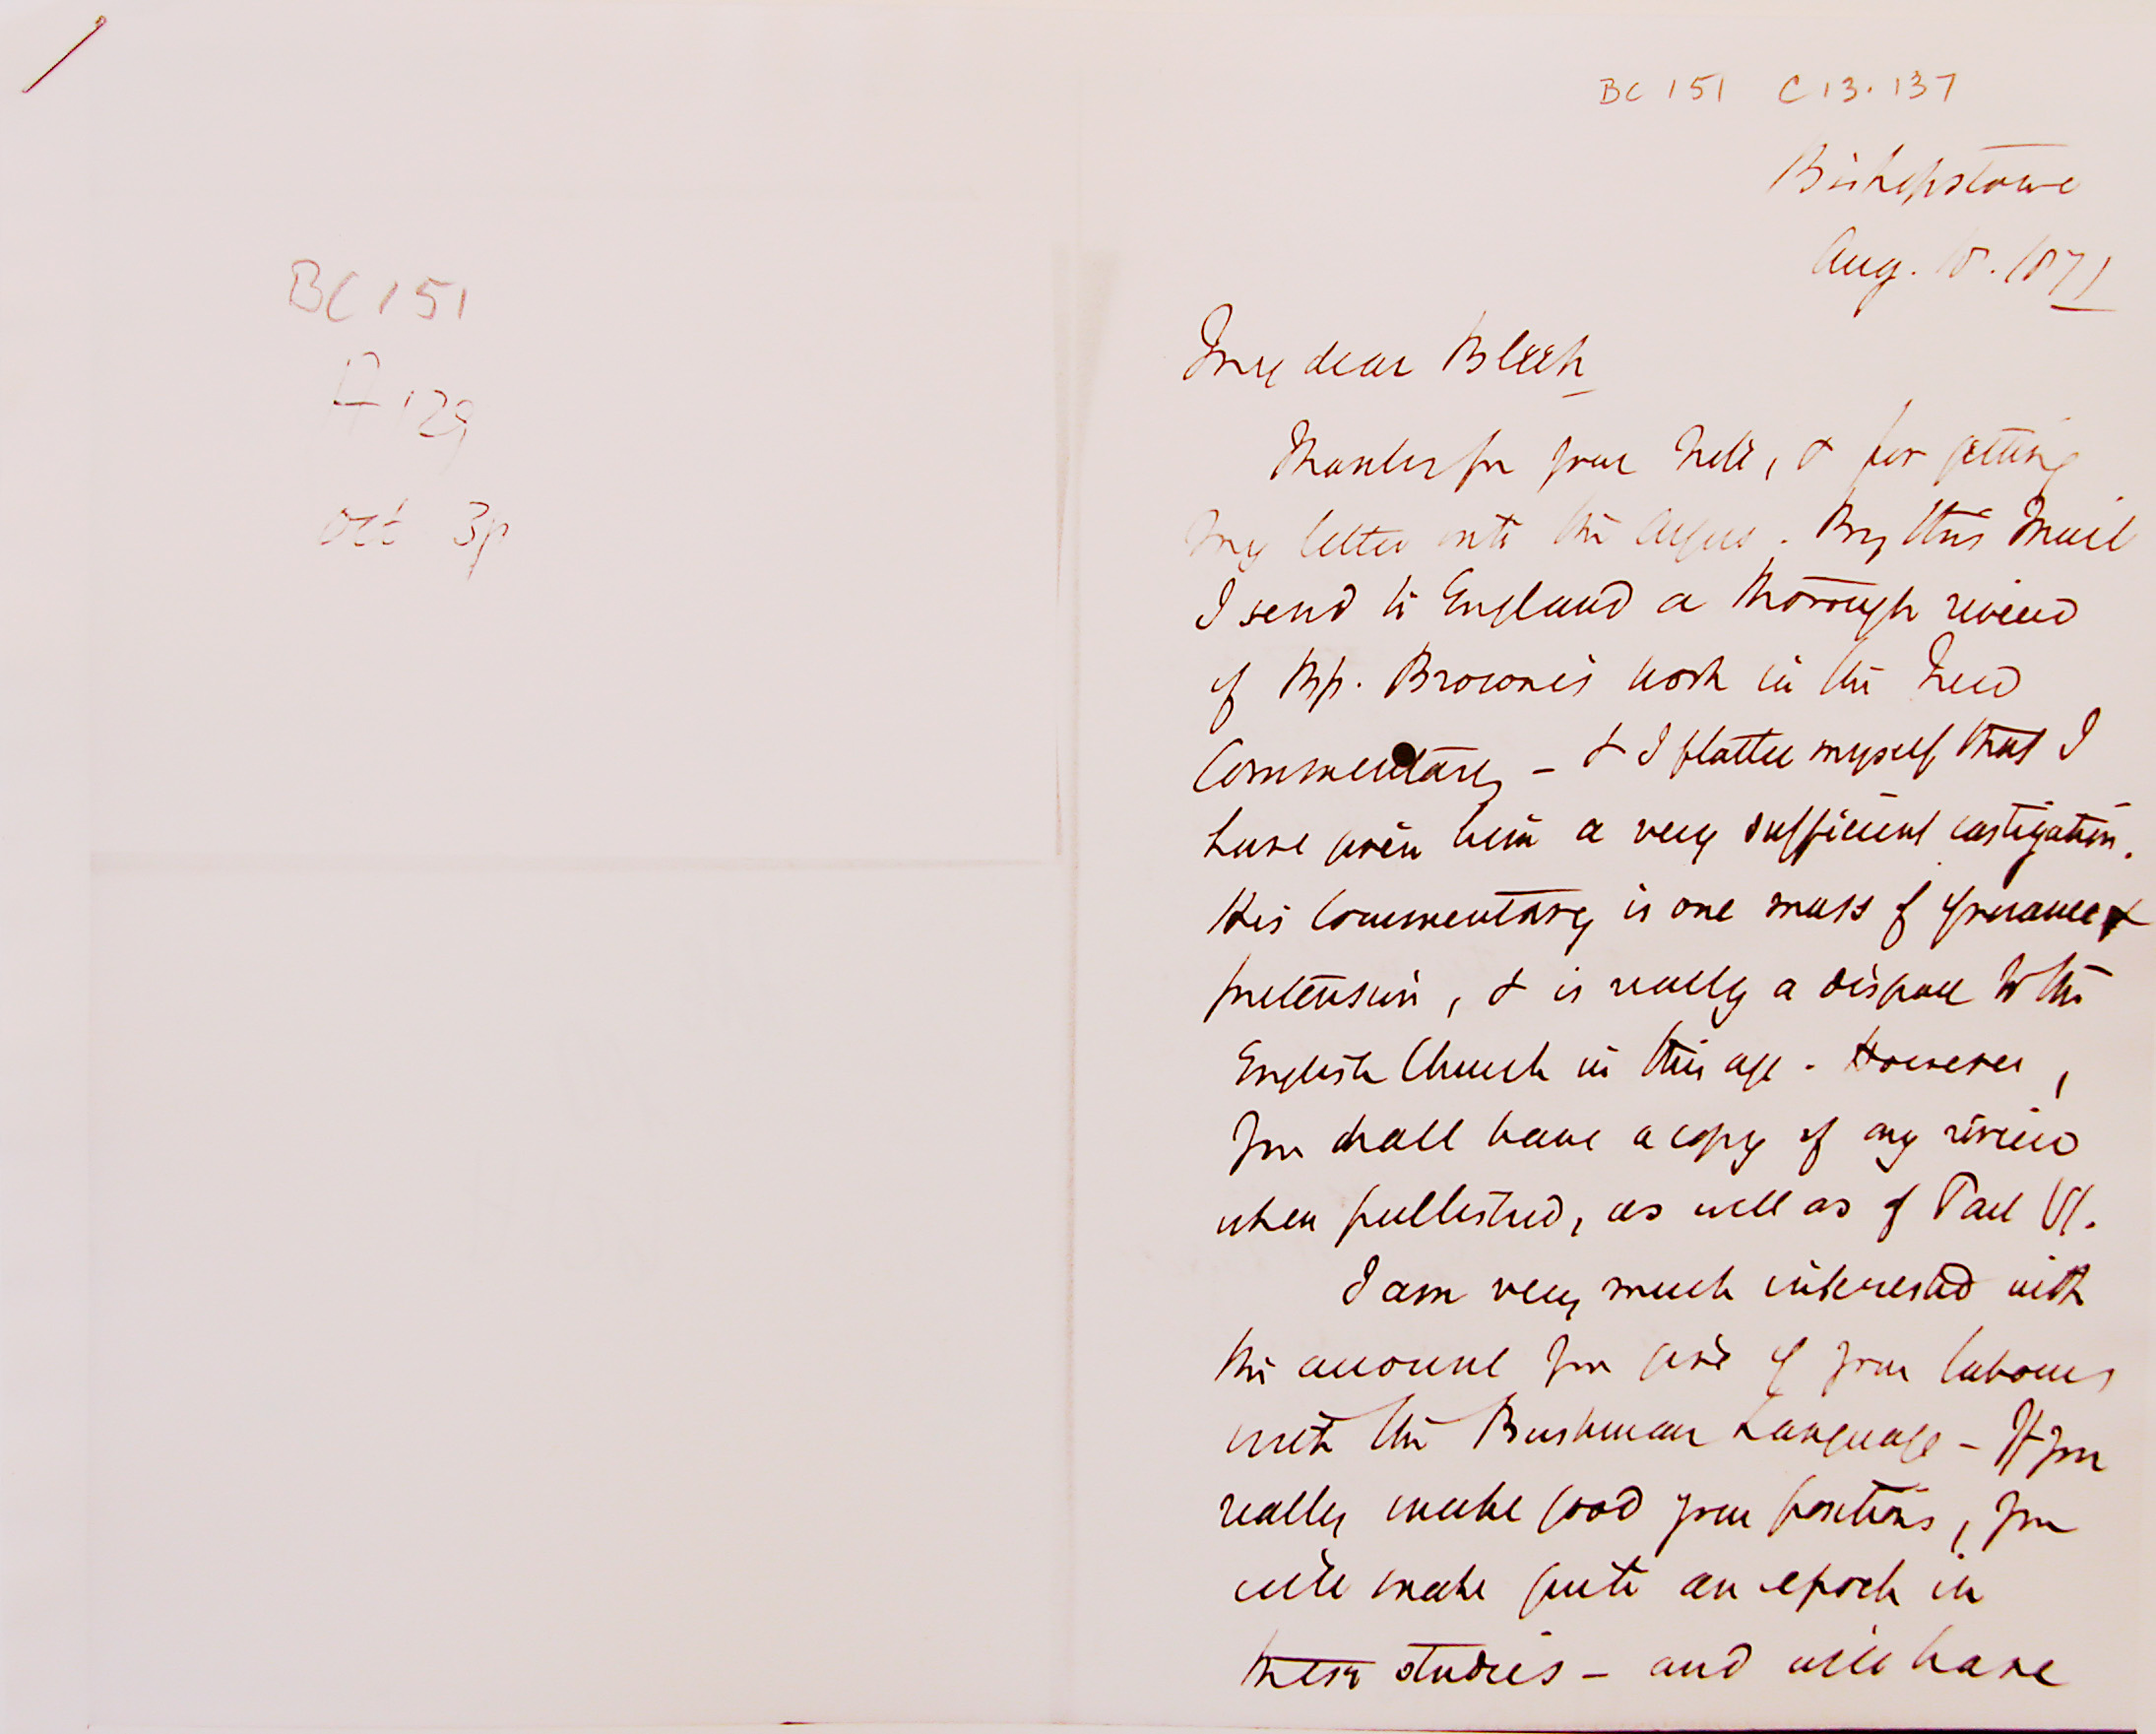 BC 151
A 129
oct 3p
BC 151 C13.137
Bishopstowe
Aug. 1871
My dear Bleek
Thanks for your note, & for getting
my letter into the Argus. By this Mail
I send to England a thorough review
of Bp. Browne's work in the New
Commentary – & I flatter myself that I
have given him a very sufficient castigation.
His Commentary is one mass of ignorance &
pretension, & is really a disgrace to the
English Church in this age. However,
you shall have a copy of my review
when published, as well as of Part VI.
I am very much interested with
the account you give of your labours
with the Bushman Language – If you
really make good your positions, you
will make quite an epoch in
these studies – and will have